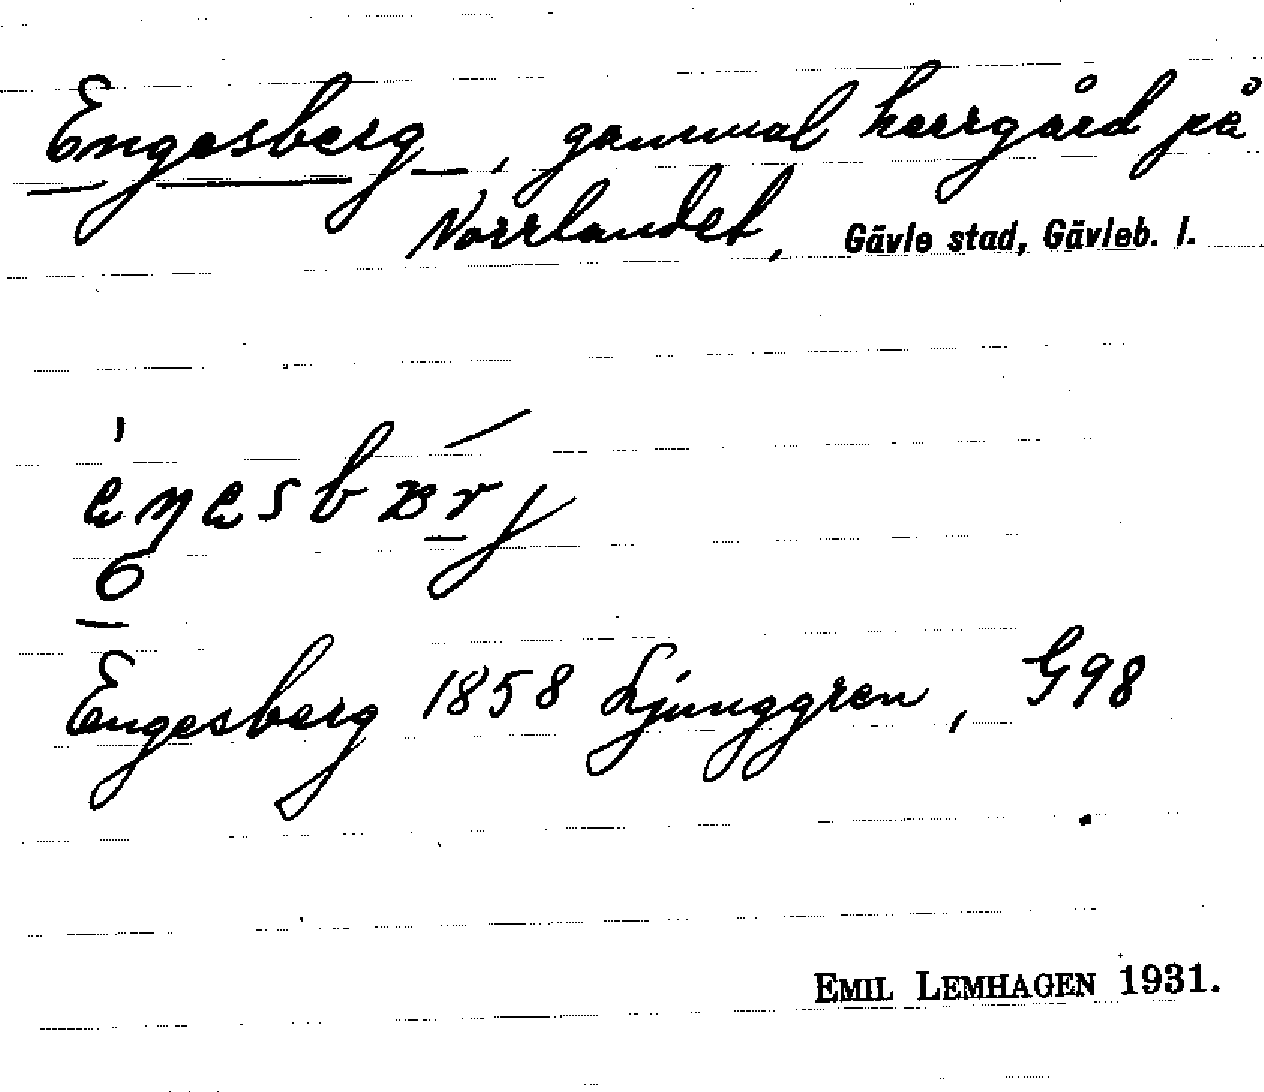 Engesberg, gammal herrgård på
Norrlandet, Gävle stad, Gävleb. l.
Engesberg 1858 Ljunggren, G98
EMIL LEMHAGEN 1931.